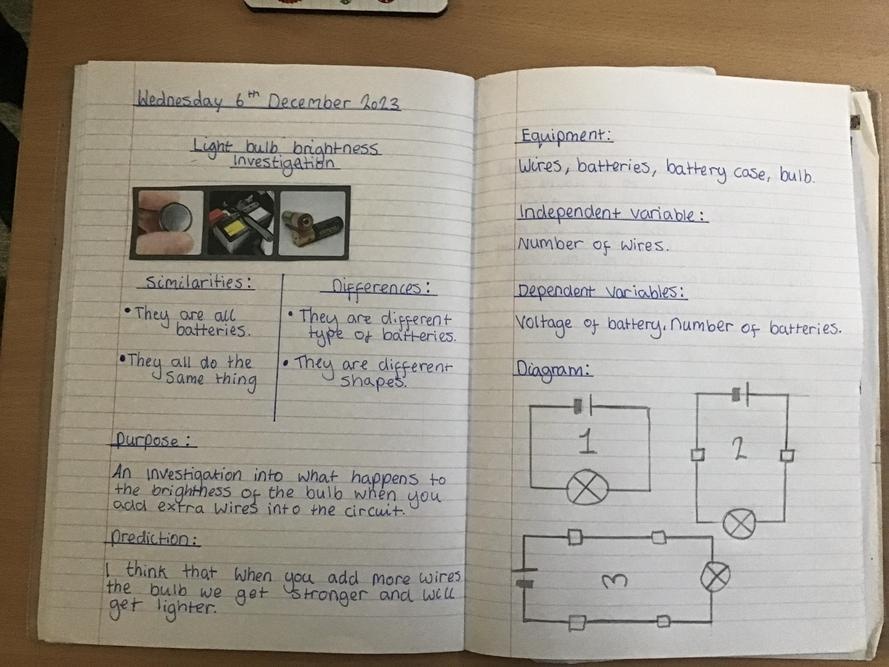 Wednesday 6th December 2023
Light bulb brightness
Investigation
Similarities:
• They are all
batteries.
• They all do the
same thing
Differences:
• They are different
type of batteries.
• They are different
shapes.
Purpose:
An investigation into what happens to
the brightness of the bulb when you
add extra wires into the circuit.
Prediction:
I think that when you add more wires
the bulb we get stronger and will
get lighter.
Equipment:
Wires, batteries, battery case, bulb.
Independent variable:
Number of wires.
Dependent variables:
Voltage of battery. Number of batteries.
Diagram:
1
2
3